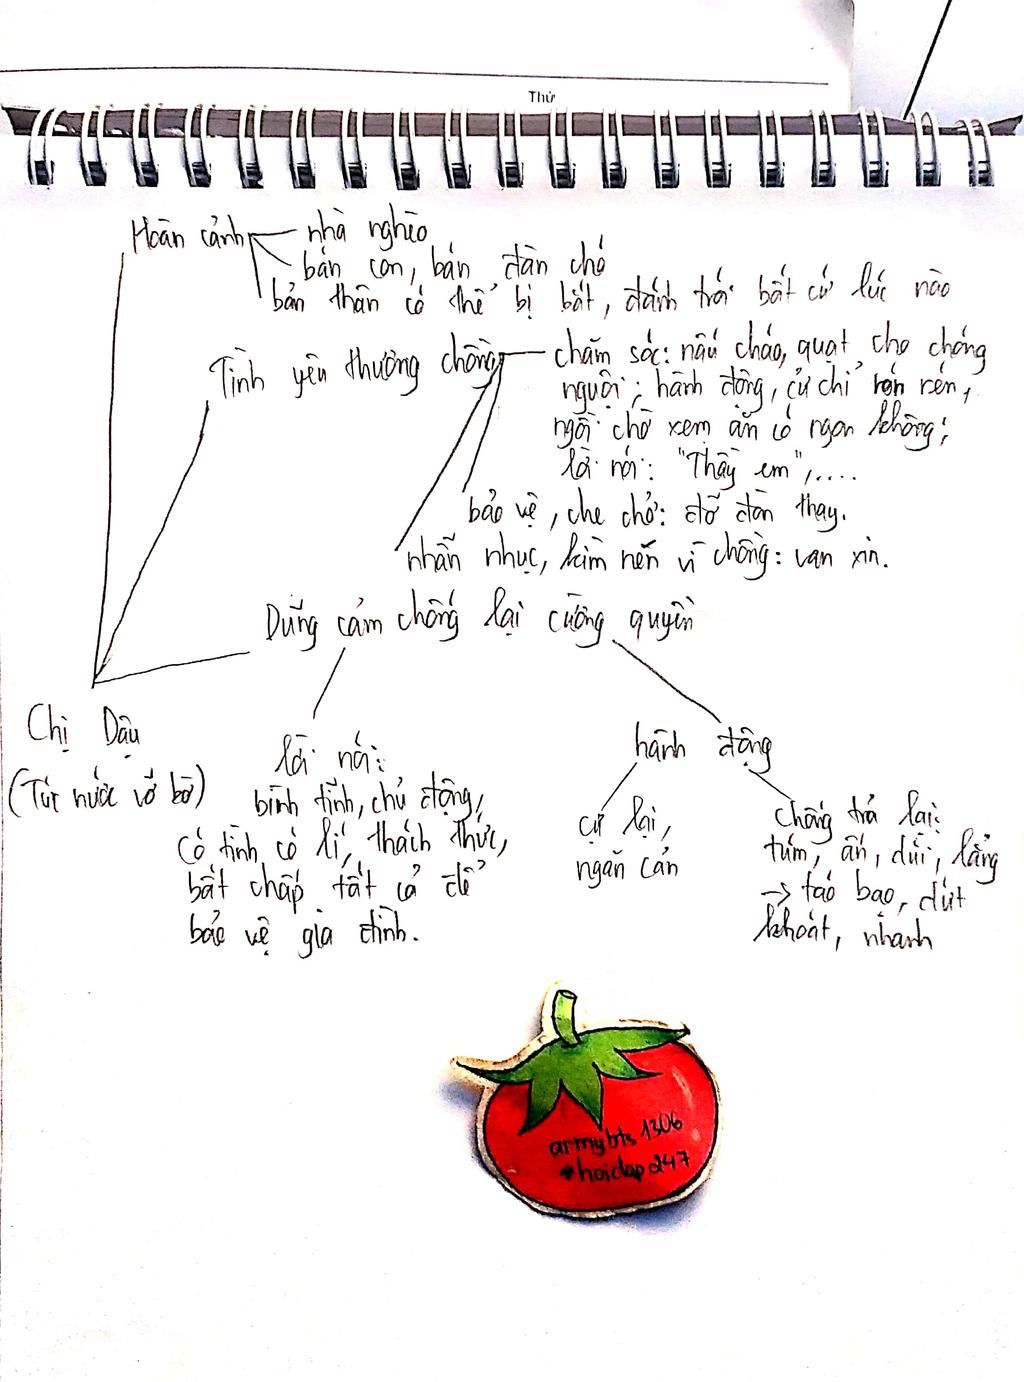 Thứ
Hoàn cảnh
nhà nghèo
bán con, bán đàn chó
bản thân có thể bị bắt, đánh trói bất cứ lúc nào
Tình yêu thương chồng
chăm sóc: nấu cháo, quạt cho chóng
nguội; hành động, cử chỉ rón rén,
ngồi chờ xem ăn có ngon không;
lời nói: "Thầy em",....
bảo vệ, che chở: đỡ đòn thay.
nhẫn nhục, kìm nén vì chồng: van xin.
Dũng cảm chống lại cường quyền
Chị Dậu
(Tức nước vỡ bờ)
lời nói:
bình tĩnh, chủ động,
có tình có lí, thách thức,
bất chấp tất cả để
bảo vệ gia đình.
hành động
cự lại,
ngăn cản
chống trả lại:
túm, ấn, dúi, lẳng
→ táo bạo, dứt
khoát, nhanh
armybts1306
#hoidap247